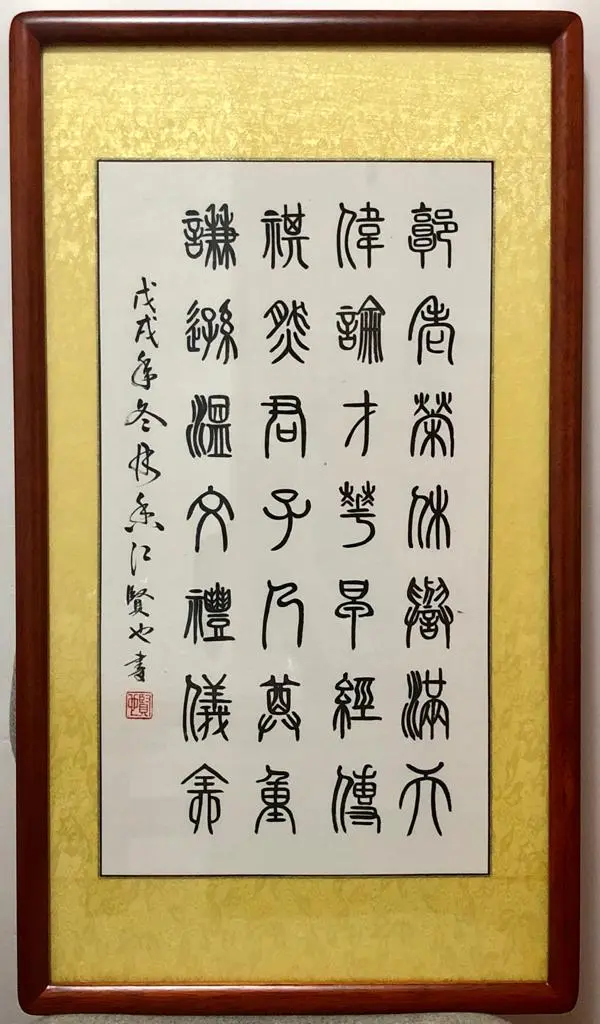 郭老榮休譽滿天
偉論才華早經傳
祺然君子乃尊重
謙遜溫文禮儀全
戊戌年冬於香江賢也書